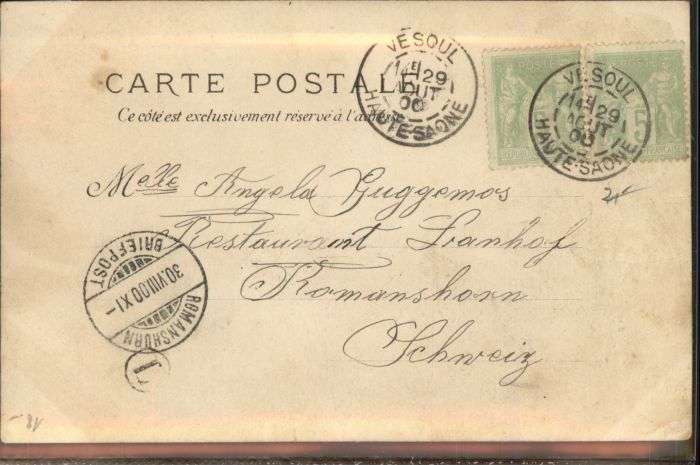 CARTE POSTALE
Ce côté est exclusivement réservé à l'adresse
VESOUL
29
AOUT
00
HAUTE-SAONE
VESOUL
29
AOUT
00
HAUTE-SAONE
5
Melle Angela Guggemos
Restaurant
Romanshorn
Schweiz
BRIEFPOST
30.VIII00 XI-
ROMANSHORN